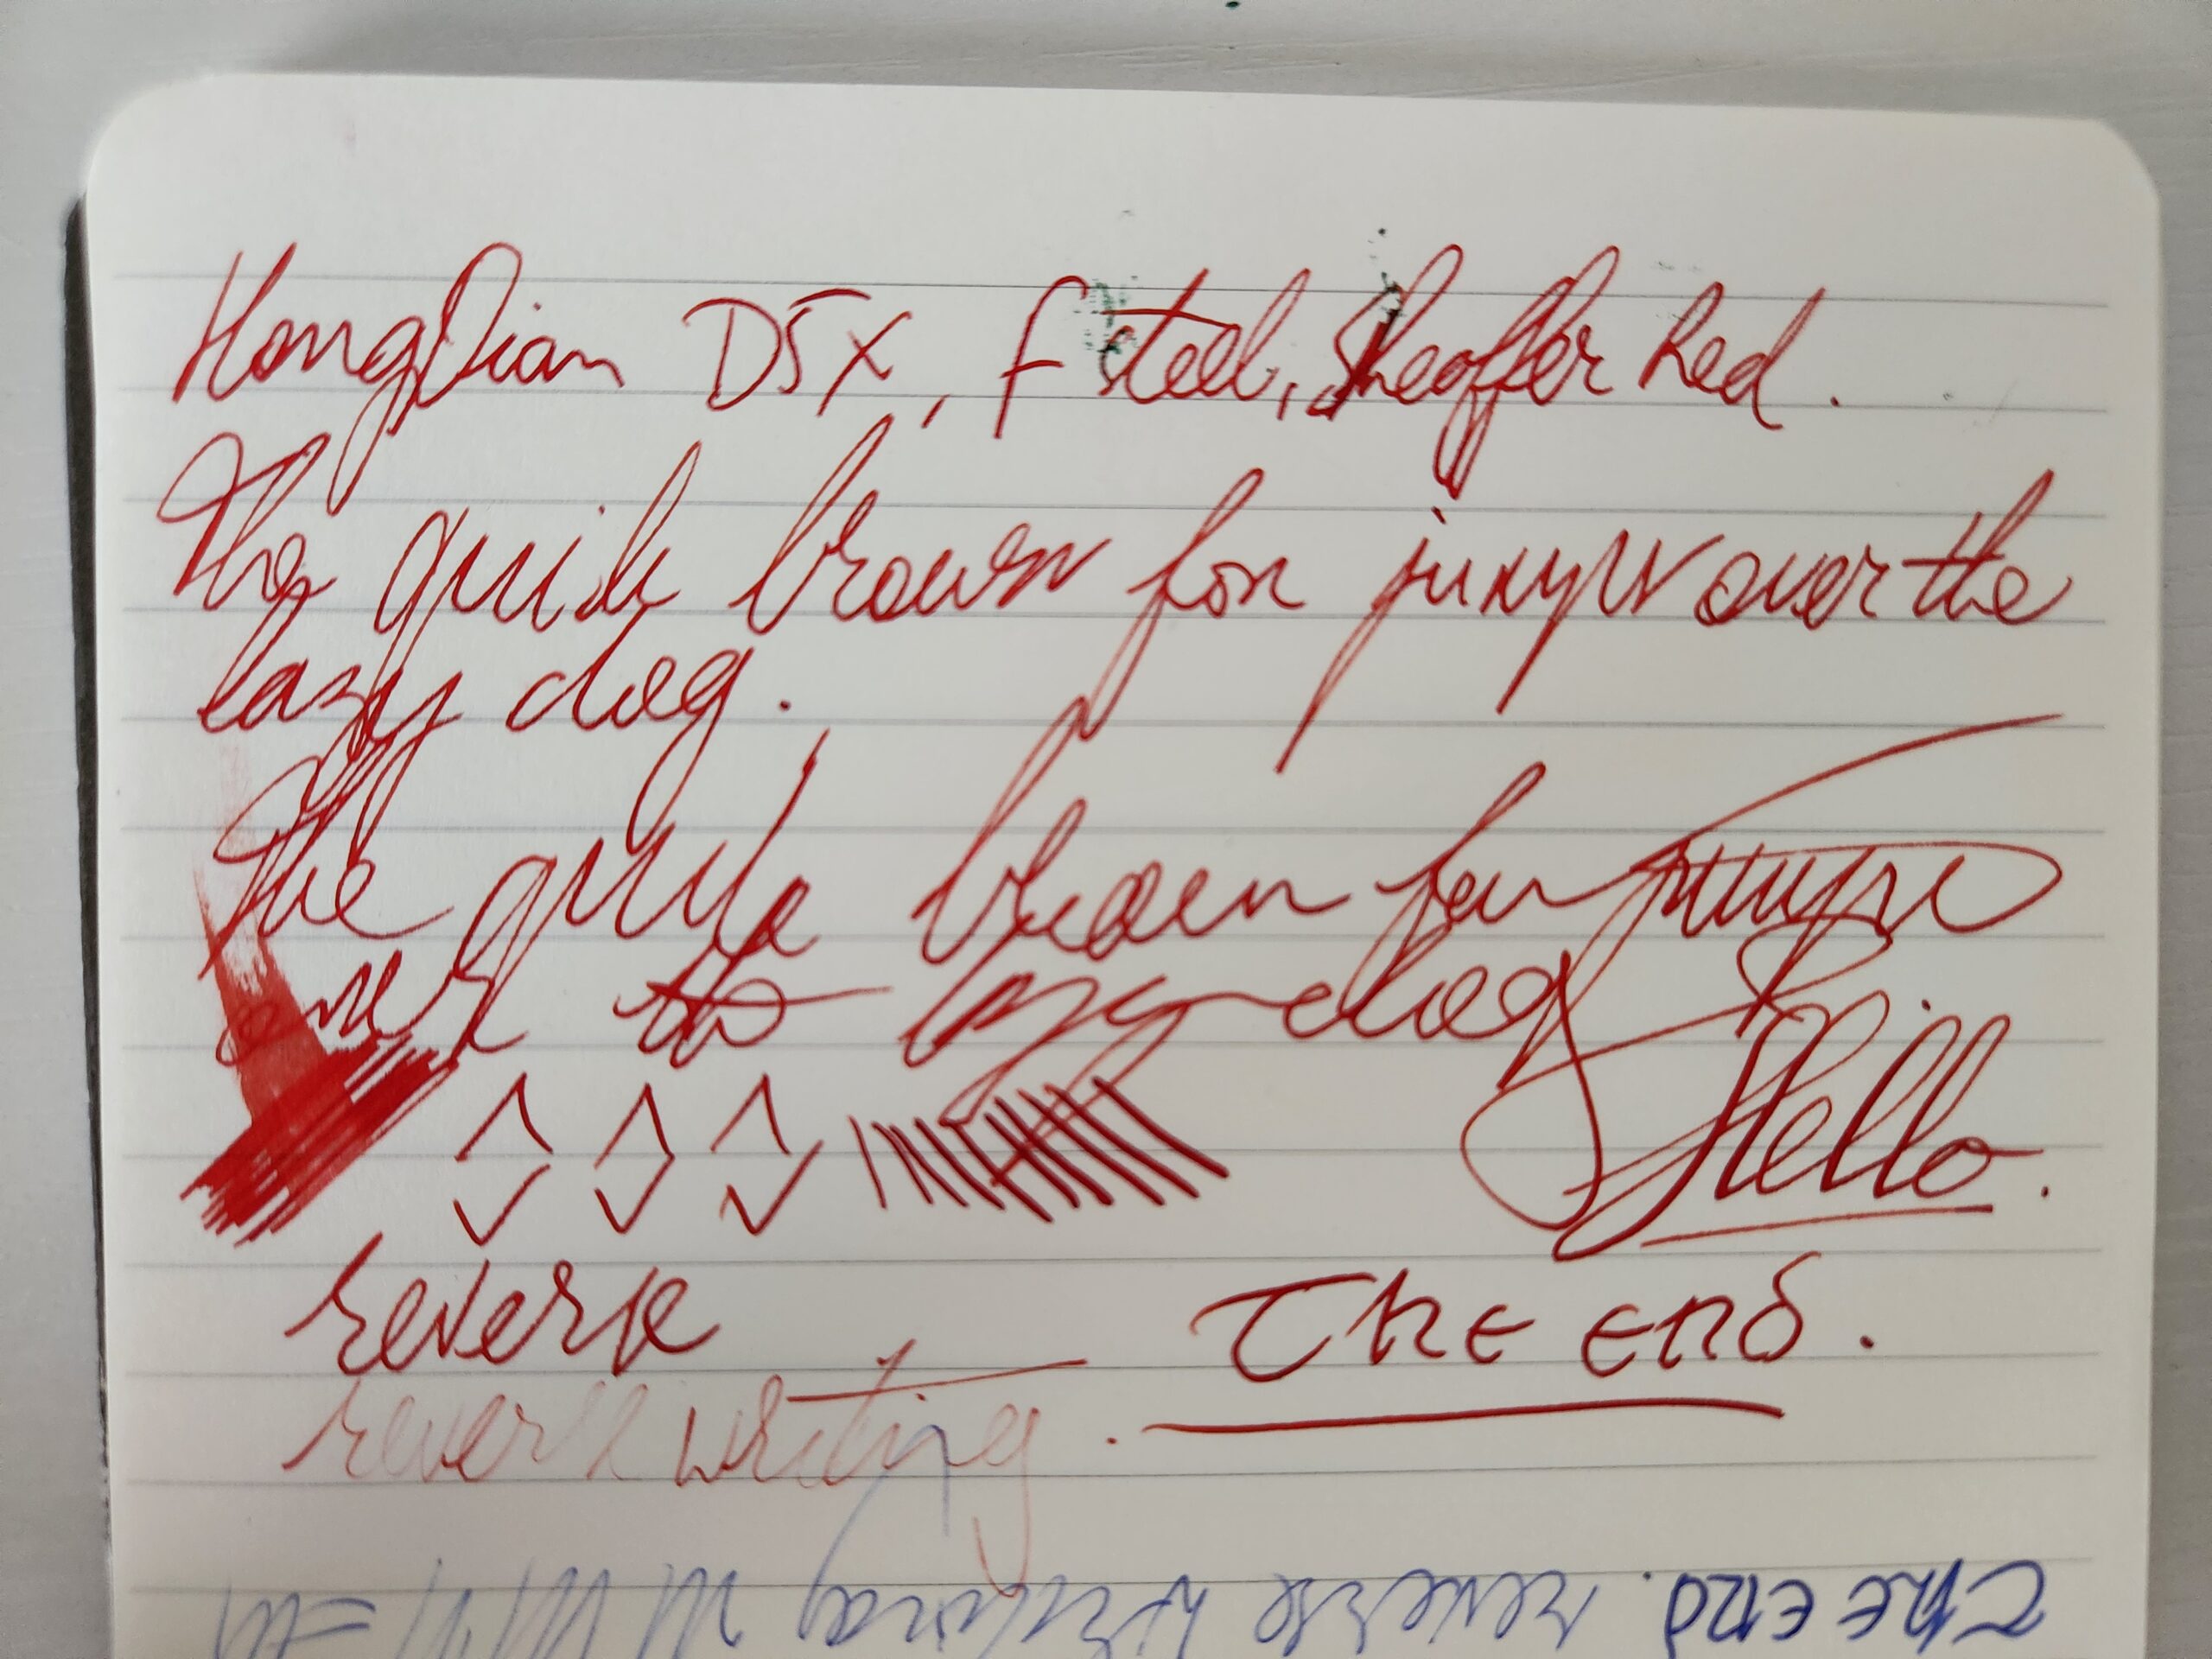 HongDian D5X, F steel, Sheaffer Red.
The quick brown fox jumps over the
lazy dog.
The quick brown fox jumps
over the lazy dog
Hello.
reverse
The end.
reverse writing.
The end. reverse writing